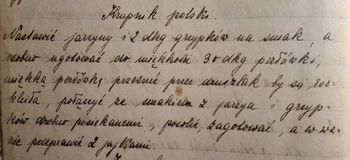 Krupnik polski.
Nastawić jarzyny i 2 dkg grzybków na smak, a
osobno ugotować do miękkości 30 dkg perłówki,
miękką perłówkę przetrzeć przez druszlak by się roz-
kleiła, połączyć ze smakiem z jarzyn i grzyb-
ków drobno posiekanemi, posolić zagotować, a w wa-
zie podprawić 2 jajkami.